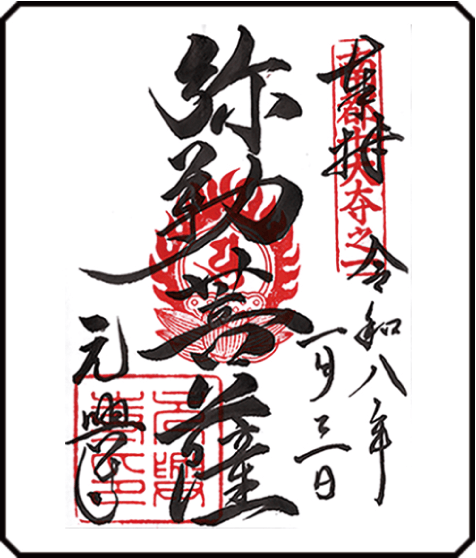 奉拝
南都七大寺之一
令和八年
一月三日
弥勒菩薩
元興寺
元興
寺印